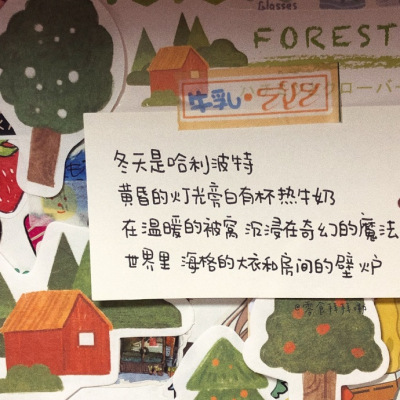 Glasses
FOREST
牛乳
冬天是哈利波特
黄昏的灯光旁白有杯热牛奶
在温暖的被窝 沉浸在奇幻的魔法
世界里 海格的大衣和房间的壁炉